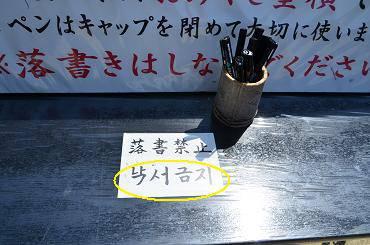 ペンはキャップを閉めて大切に使いま
※落書きはしな でくださ
落書禁止
낙서금지